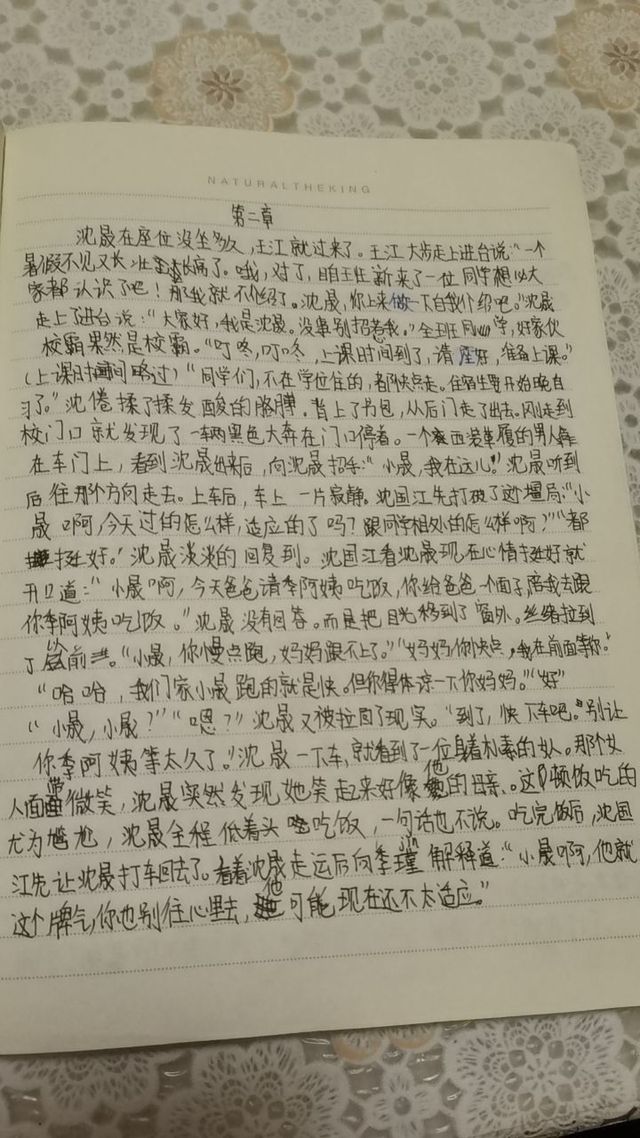 NATURALTHEKING
第二章
沈晟在座位没坐多久,王江就过来了。王江大步走上进台说:“一个
暑假不见又长壮长高了。哦,对了,咱班新来了一位同学想必大
家都认识了吧!那我就不介绍了。沈晟,你上来做一下自我介绍吧。”沈晟
走上了进台说:“大家好,我是沈晟。没事别招惹我。”全班同学,好家伙
校霸果然是校霸。“叮咚,叮咚,上课时间到了,请座好,准备上课。”
(上课时间略过)“同学们,不在学位住的,都快点走。住宿生要开始晚自
习了。”沈倦揉了揉发酸的胳膊,背上了书包,从后门走了出去。刚走到
校门口就发现了一辆黑色大奔在门口停着。一个西装革履的男人靠
在车门上,看到沈晟出来后,向沈晟招手:“小晟,我在这儿!”沈晟听到
后往那个方向走去。上车后,车上一片寂静。沈国江先打破了这僵局:“小
晟啊,今天过的怎么样,适应的了吗?跟同学相处的怎么样啊?”“都
挺好。”沈晟淡淡的回复到。沈国江看沈晟现在心情挺好就
开口道:“小晟啊,今天爸爸请李阿姨吃饭,你给爸爸一个面子,陪我去跟
你李阿姨吃饭。”沈晟没有回答。而是把目光移到了窗外。丝绪拉到
了从前。“小晟,你慢点跑,妈妈跟不上了。”“妈妈你快点,我在前面等你。”
“哈哈,我们家小晟跑的就是快。但你得体谅一下你妈妈。”“好”
“小晟,小晟?”“嗯?”沈晟又被拉回了现实。“到了,快下车吧。别让
你李阿姨等太久了。”沈晟一下车,就看到了一位身着朴素的女人。那个女
人面带微笑,沈晟突然发现她笑起来好像他的母亲。这顿饭吃的
尤为尴尬,沈晟全程低着头吃饭,一句话也不说。吃完饭后,沈国
江先让沈晟打车回去了。看着沈晟走远后向李瑾解释道:“小晟啊,他就
这个牌气,你也别往心里去,他可能现在还不太适应。”